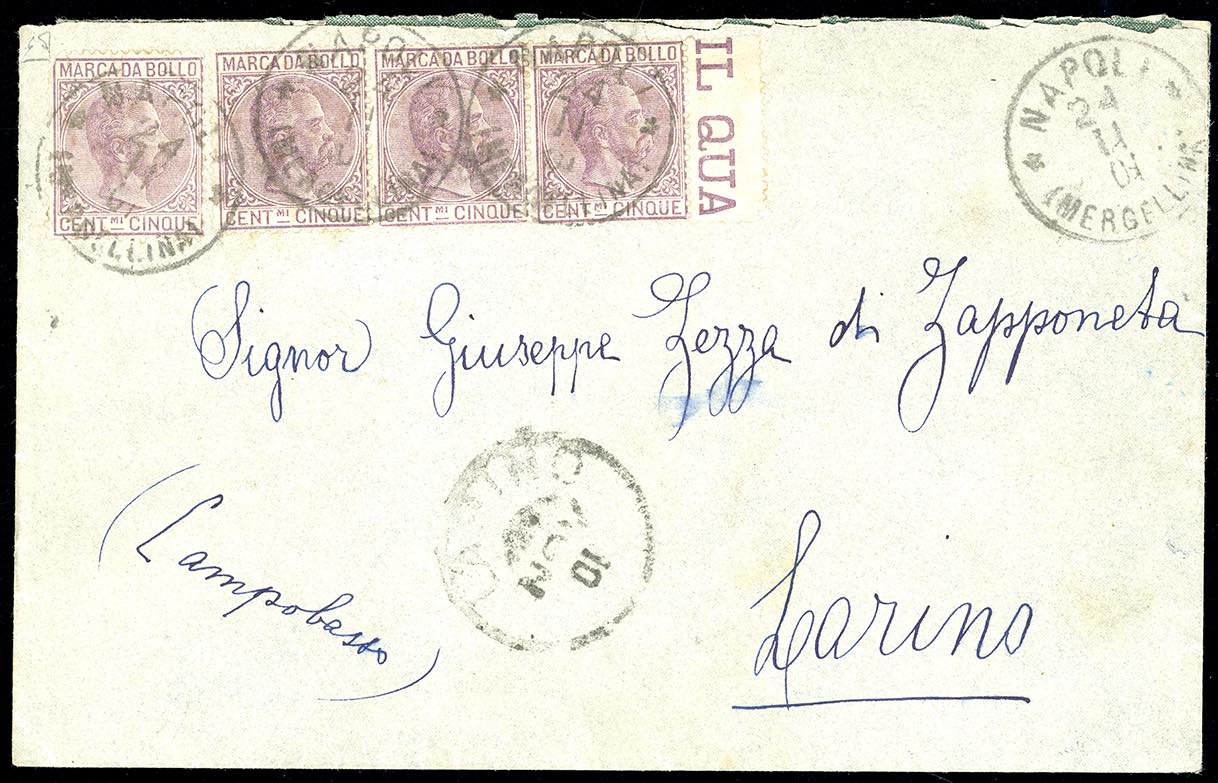 MARCA DA BOLLO MARCA DA BOLLO MARCA DA BOLLO MARCA DA BOLLO
CENT.MI CINQUE CENT.MI CINQUE CENT.MI CINQUE CENT.MI CINQUE
IL QUA
NAPOLI
(MERGELLINA
11
01
Signor Giuseppe Zezza di Zapponeta
LARINO
NOV
01
(Campobasso)
Larino